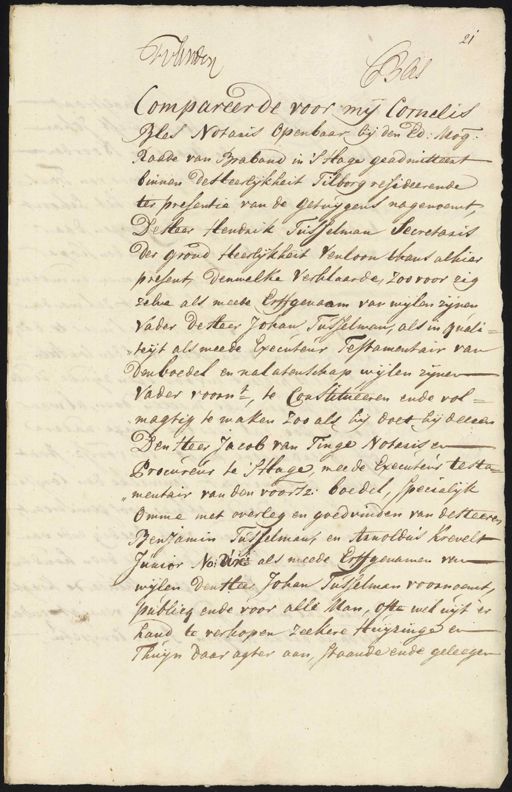 21
Bles
Compareerde voor mij Cornelis
Bles Notaris openbaar bij den Ed: Mog:
Raade van Braband in 'sHage geadmitteert
binnen de Heerlijkheit Tilborg resideerende
ter presentie van de getuygens nagenoemt,
De Heer Hendrik Tusselman Secretaris
der grond Heerlijkheit Venloon thans alhier
present, Denwelke Verklaarde, zoo voor zig
zelve als meede Erffgenaam van wijlen zijnen
Vader De Heer Johan Tusselman, als in quali-
teijt als meede Executeur Testamentair van
Den boedel en nalatenschap wijlen zijnen
Vader voornt, te Constitueeren ende vol-
magtig te maken zoo als hij doet bij deesen
Den Heer Jacob van Tinge Notaris en
Procureur te 'sHage, meede Executeur testa-
mentair van den voorsz: boedel, specialijk
Omme met overleg en goedvinden van de Heeren
Benjamin Tusselman, en Arnoldus Krevelt
Junior als meede Erffgenamen van
wijlen den Heer Johan Tusselman voornoemt,
publicq ende voor alle Man, ofte uijt er
hand te verkopen zeekere Huijzinge en
Thuijn daar agter aan, staande ende geleegen